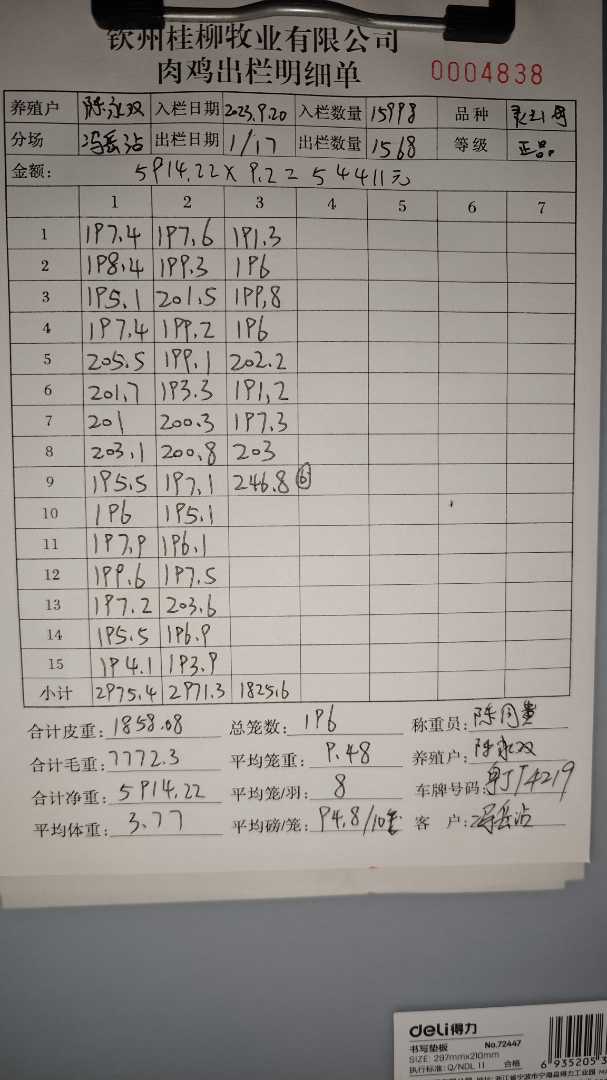 钦州桂柳牧业有限公司
肉鸡出栏明细单 0004838
养殖户 陈永双 入栏日期 2023.9.20 入栏数量 15998 品种
分场 冯岳沾 出栏日期 1/17 出栏数量 1568 等级 正品
金额: 5914.22×9.2=54411元
1 2 3 4 5 6 7
1 197.4 197.6 191.3
2 198.4 199.3 196
3 195.1 201.5 199.8
4 197.4 199.2 196
5 205.5 199.1 202.2
6 201.7 193.3 191.2
7 201 200.3 197.3
8 203.1 200.8 203
9 195.5 197.1 246.8 ⑥
10 196 195.1
11 197.9 196.1
12 199.6 197.5
13 197.2 203.6
14 195.5 196.9
15 194.1 193.9
小计 2975.4 2971.3 1825.6
合计皮重: 1858.08 总笼数: 196 称重员:
合计毛重: 7772.3 平均笼重: 9.48 养殖户: 陈永双
合计净重: 5914.22 平均笼/羽: 8 车牌号码: T4219
平均体重: 3.77 平均磅/笼: 94.8/10笼 客 户: 冯岳沾
deli得力
书写垫板 No.72447
SIZE: 297mmx210mm
执行标准: Q/NDL 11 合格 6 935205 3